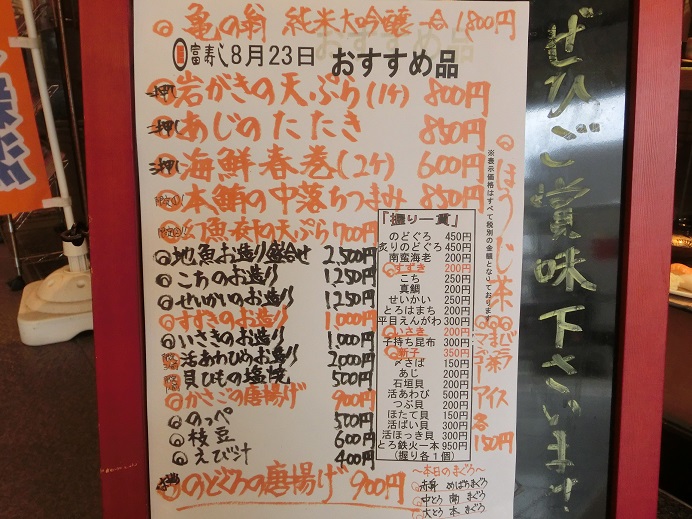 亀の翁 純米大吟醸 一合 1,800円
富寿し 8月23日 おすすめ品
押 岩がきの天ぷら(1ケ) 800円
押 あじのたたき 850円
押 海鮮春巻(2ケ) 600円
本鮪の中落ちつまみ 850円
幻魚の天ぷら 700円
地魚お造り盛合せ 2,500円
こちのお造り 1,250円
せいかいのお造り 1,250円
すずきのお造り 1,000円
いさきのお造り 1,000円
活あわびのお造り 2,000円
貝ひもの塩焼 500円
かさごの唐揚げ 900円
のっぺ 500円
枝豆 600円
えび汁 400円
のどぐろの唐揚げ 900円
『握り一貫』
のどぐろ 450円
炙りのどぐろ 450円
南蛮海老 200円
すずき 200円
こち 250円
真鯛 200円
せいかい 250円
とろはまち 200円
平目えんがわ 300円
いさき 200円
子持ち昆布 300円
新子 350円
〆さば 150円
あじ 200円
石垣貝 200円
活あわび 500円
つぶ貝 200円
ほたて貝 150円
活ばい貝 300円
活ほっき貝 300円
とろ鉄火一本 950円
(握り各1個)
～本日のまぐろ～
赤身 めばちまぐろ
中とろ 南まぐろ
大とろ 本まぐろ
※表示価格はすべて税別の金額となっております
ほうじ茶
アイス
各
150円
ぜひご賞味下さいます